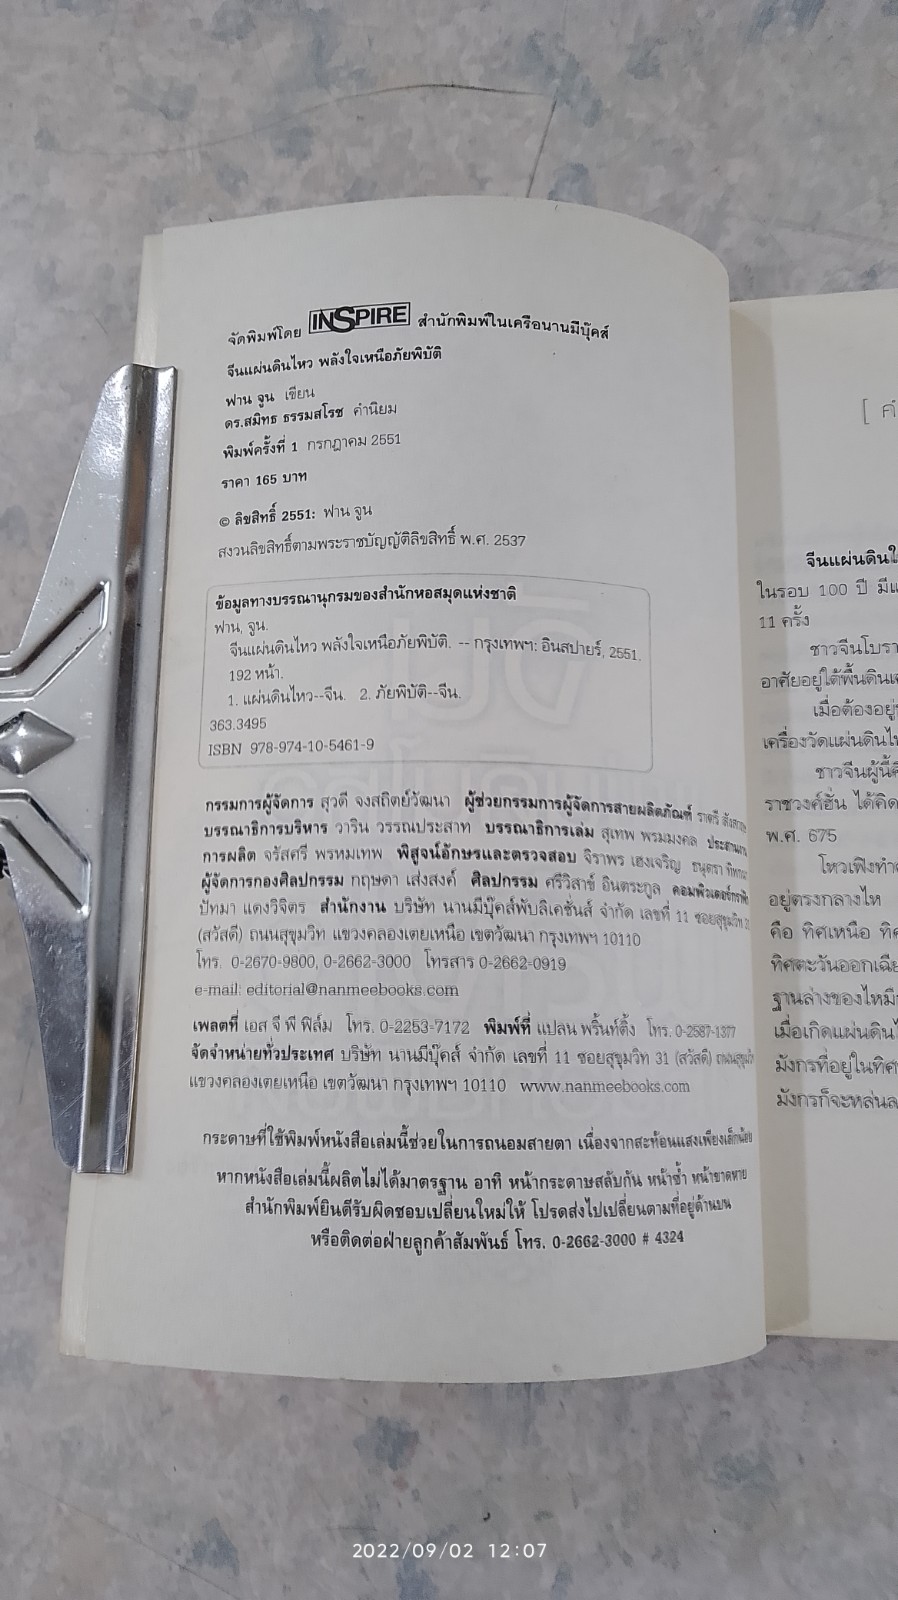 จัดพิมพ์โดย INSPIRE สำนักพิมพ์ในเครือนานมีบุ๊คส์
จีนแผ่นดินไหว พลังใจเหนือภัยพิบัติ
ฟาน จูน เขียน
ดร.สมิทธ ธรรมสโรช คำนิยม
พิมพ์ครั้งที่ 1 กรกฎาคม 2551
ราคา 165 บาท
© ลิขสิทธิ์ 2551: ฟาน จูน
สงวนลิขสิทธิ์ตามพระราชบัญญัติลิขสิทธิ์ พ.ศ. 2537
ข้อมูลทางบรรณานุกรมของสำนักหอสมุดแห่งชาติ
ฟาน, จูน.
จีนแผ่นดินไหว พลังใจเหนือภัยพิบัติ. -- กรุงเทพฯ: อินสปายร์, 2551.
192 หน้า.
1. แผ่นดินไหว--จีน. 2. ภัยพิบัติ--จีน.
363.3495
ISBN 978-974-10-5461-9
กรรมการผู้จัดการ สุวดี จงสถิตย์วัฒนา ผู้ช่วยกรรมการผู้จัดการสายผลิตภัณฑ์ ราตรี
บรรณาธิการบริหาร วาริน วรรณประสาท บรรณาธิการเล่ม สุเทพ พรมมงคล ประสานงาน
การผลิต จรัสศรี พรหมเทพ พิสูจน์อักษรและตรวจสอบ จิราพร เฮงเจริญ ธนุตรา
ผู้จัดการกองศิลปกรรม กฤษดา เส่งสงค์ ศิลปกรรม ศรีวิสาข์ อินตระกูล คอมพิวเตอร์กราฟิก
ปัทมา แดงวิจิตร สำนักงาน บริษัท นานมีบุ๊คส์พับลิเคชั่นส์ จำกัด เลขที่ 11 ซอยสุขุมวิท
(สวัสดี) ถนนสุขุมวิท แขวงคลองเตยเหนือ เขตวัฒนา กรุงเทพฯ 10110
โทร. 0-2670-9800, 0-2662-3000 โทรสาร 0-2662-0919
e-mail: editorial@nanmeebooks.com
เพลตที่ เอส จี พี ฟิล์ม โทร. 0-2253-7172 พิมพ์ที่ แปลน พริ้นท์ติ้ง โทร. 0-2587-1377
จัดจำหน่ายทั่วประเทศ บริษัท นานมีบุ๊คส์ จำกัด เลขที่ 11 ซอยสุขุมวิท 31 (สวัสดี) ถนนสุขุมวิท
แขวงคลองเตยเหนือ เขตวัฒนา กรุงเทพฯ 10110 www.nanmeebooks.com
กระดาษที่ใช้พิมพ์หนังสือเล่มนี้ช่วยในการถนอมสายตา เนื่องจากสะท้อนแสงเพียงเล็กน้อย
หากหนังสือเล่มนี้ผลิตไม่ได้มาตรฐาน อาทิ หน้ากระดาษสลับกัน หน้าซ้ำ หน้าขาดหาย
สำนักพิมพ์ยินดีรับผิดชอบเปลี่ยนใหม่ให้ โปรดส่งไปเปลี่ยนตามที่อยู่ด้านบน
หรือติดต่อฝ่ายลูกค้าสัมพันธ์ โทร. 0-2662-3000 # 4324
[ คำ
จีนแผ่นดินไ
ในรอบ 100 ปี มีแ
11 ครั้ง
ชาวจีนโบรา
อาศัยอยู่ใต้พื้นดินแ
เมื่อต้องอยู่
เครื่องวัดแผ่นดินไ
ชาวจีนผู้นี้คื
ราชวงศ์ฮั่น ได้คิด
พ.ศ. 675
โหวเฟิงทำ
อยู่ตรงกลางไห
คือ ทิศเหนือ ทิ
ทิศตะวันออกเฉีย
ฐานล่างของไหมี
เมื่อเกิดแผ่นดินไ
มังกรที่อยู่ในทิศ
มังกรก็จะหล่นล
2022/09/02 12:07